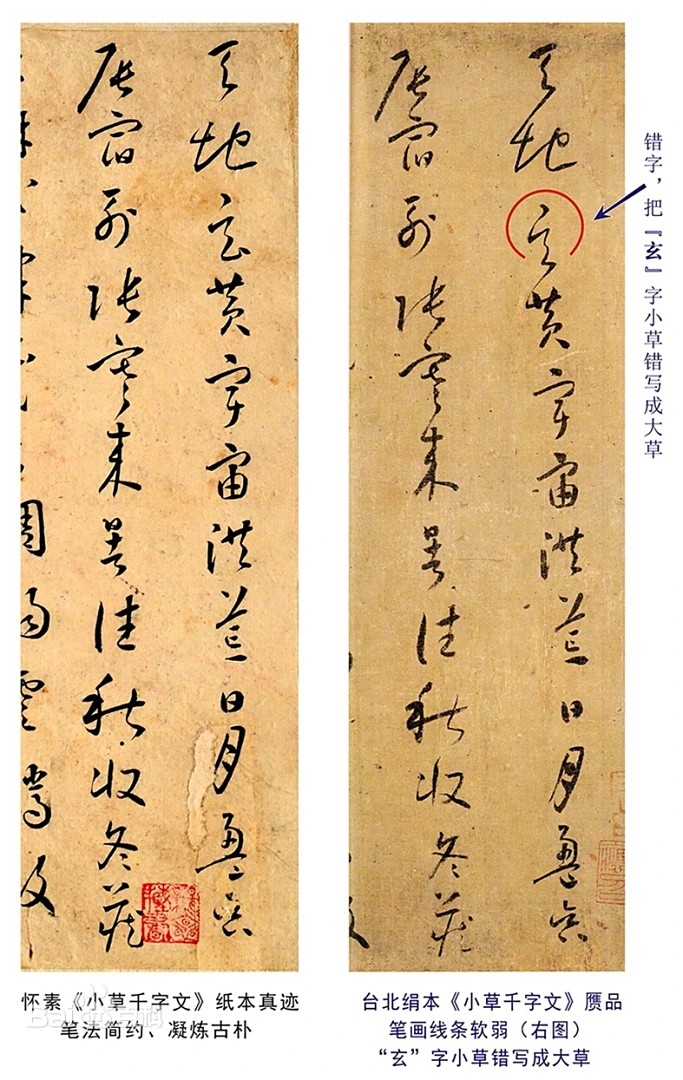 天地玄黄宇宙洪荒日月盈昃
辰宿列張寒来暑往秋收冬藏
天地玄黄宇宙洪荒日月盈昃
辰宿列張寒来暑往秋收冬藏
错字，把『玄』字小草错写成大草
怀素《小草千字文》纸本真迹
笔法简约、凝炼古朴
台北绢本《小草千字文》赝品
笔画线条软弱（右图）
“玄”字小草错写成大草